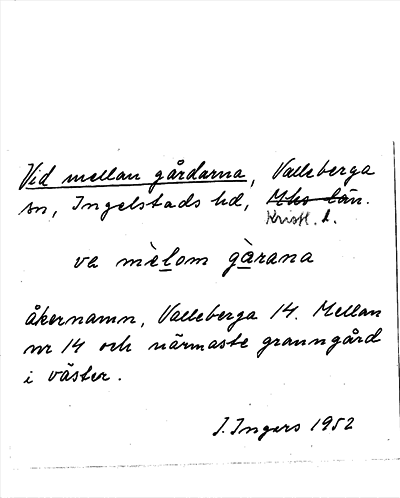 Vid mellan gårdarna, Valleberga
sn, Ingelstads hd, Mhs län.
Kristl. l.
va mèlom gàrana
åkernamn, Valleberga 14. Mellan
nr 14 och närmaste granngård
i väster.
I. Ingers 1952